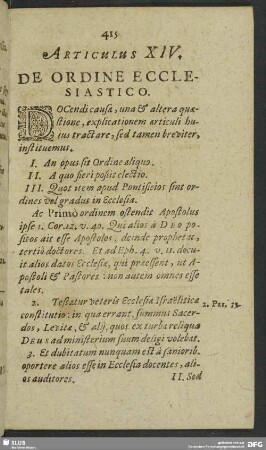 415
ARTICULUS XIV.
DE ORDINE ECCLE-
SIASTICO.
DOCendi causa, una & altera quæ-
stione, explicationem articuli hu-
ius tractare, sed tamen breviter,
instituemus.
I. An opus sit Ordine aliquo.
II. A quo fieri possit electio.
III. Quot item apud Pontificios sint or-
dines vel gradus in Ecclesia.
Ac Primò ordinem ostendit Apostolus
ipse 1. Cor. 12. v. 40. Qui alios à DEO po-
sitos ait esse Apostolos, deinde prophetas,
tertiò doctores. Et ad Eph. 4. v. 11. docu-
it alios datos Ecclesiæ, qui præessent, ut A-
postoli & Pastores: non autem omnes esse
tales.
2. Testatur veteris Ecclesiæ Israëliticæ
constitutio: in qua errant, summus Sacer-
dos, Levitæ, & alij, quos ex turba reliqua
DEUS ad ministerium suum deligi volebat.
3. Et dubitatum nunquam est à sanioribus
oportere alios esse in Ecclesia docentes, ali-
os auditores.
II. Sed
SLUB
DFG